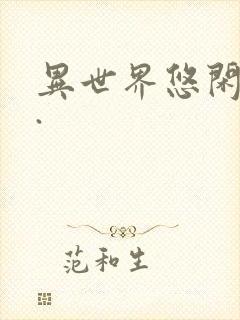 異世界悠閑
.
范和生